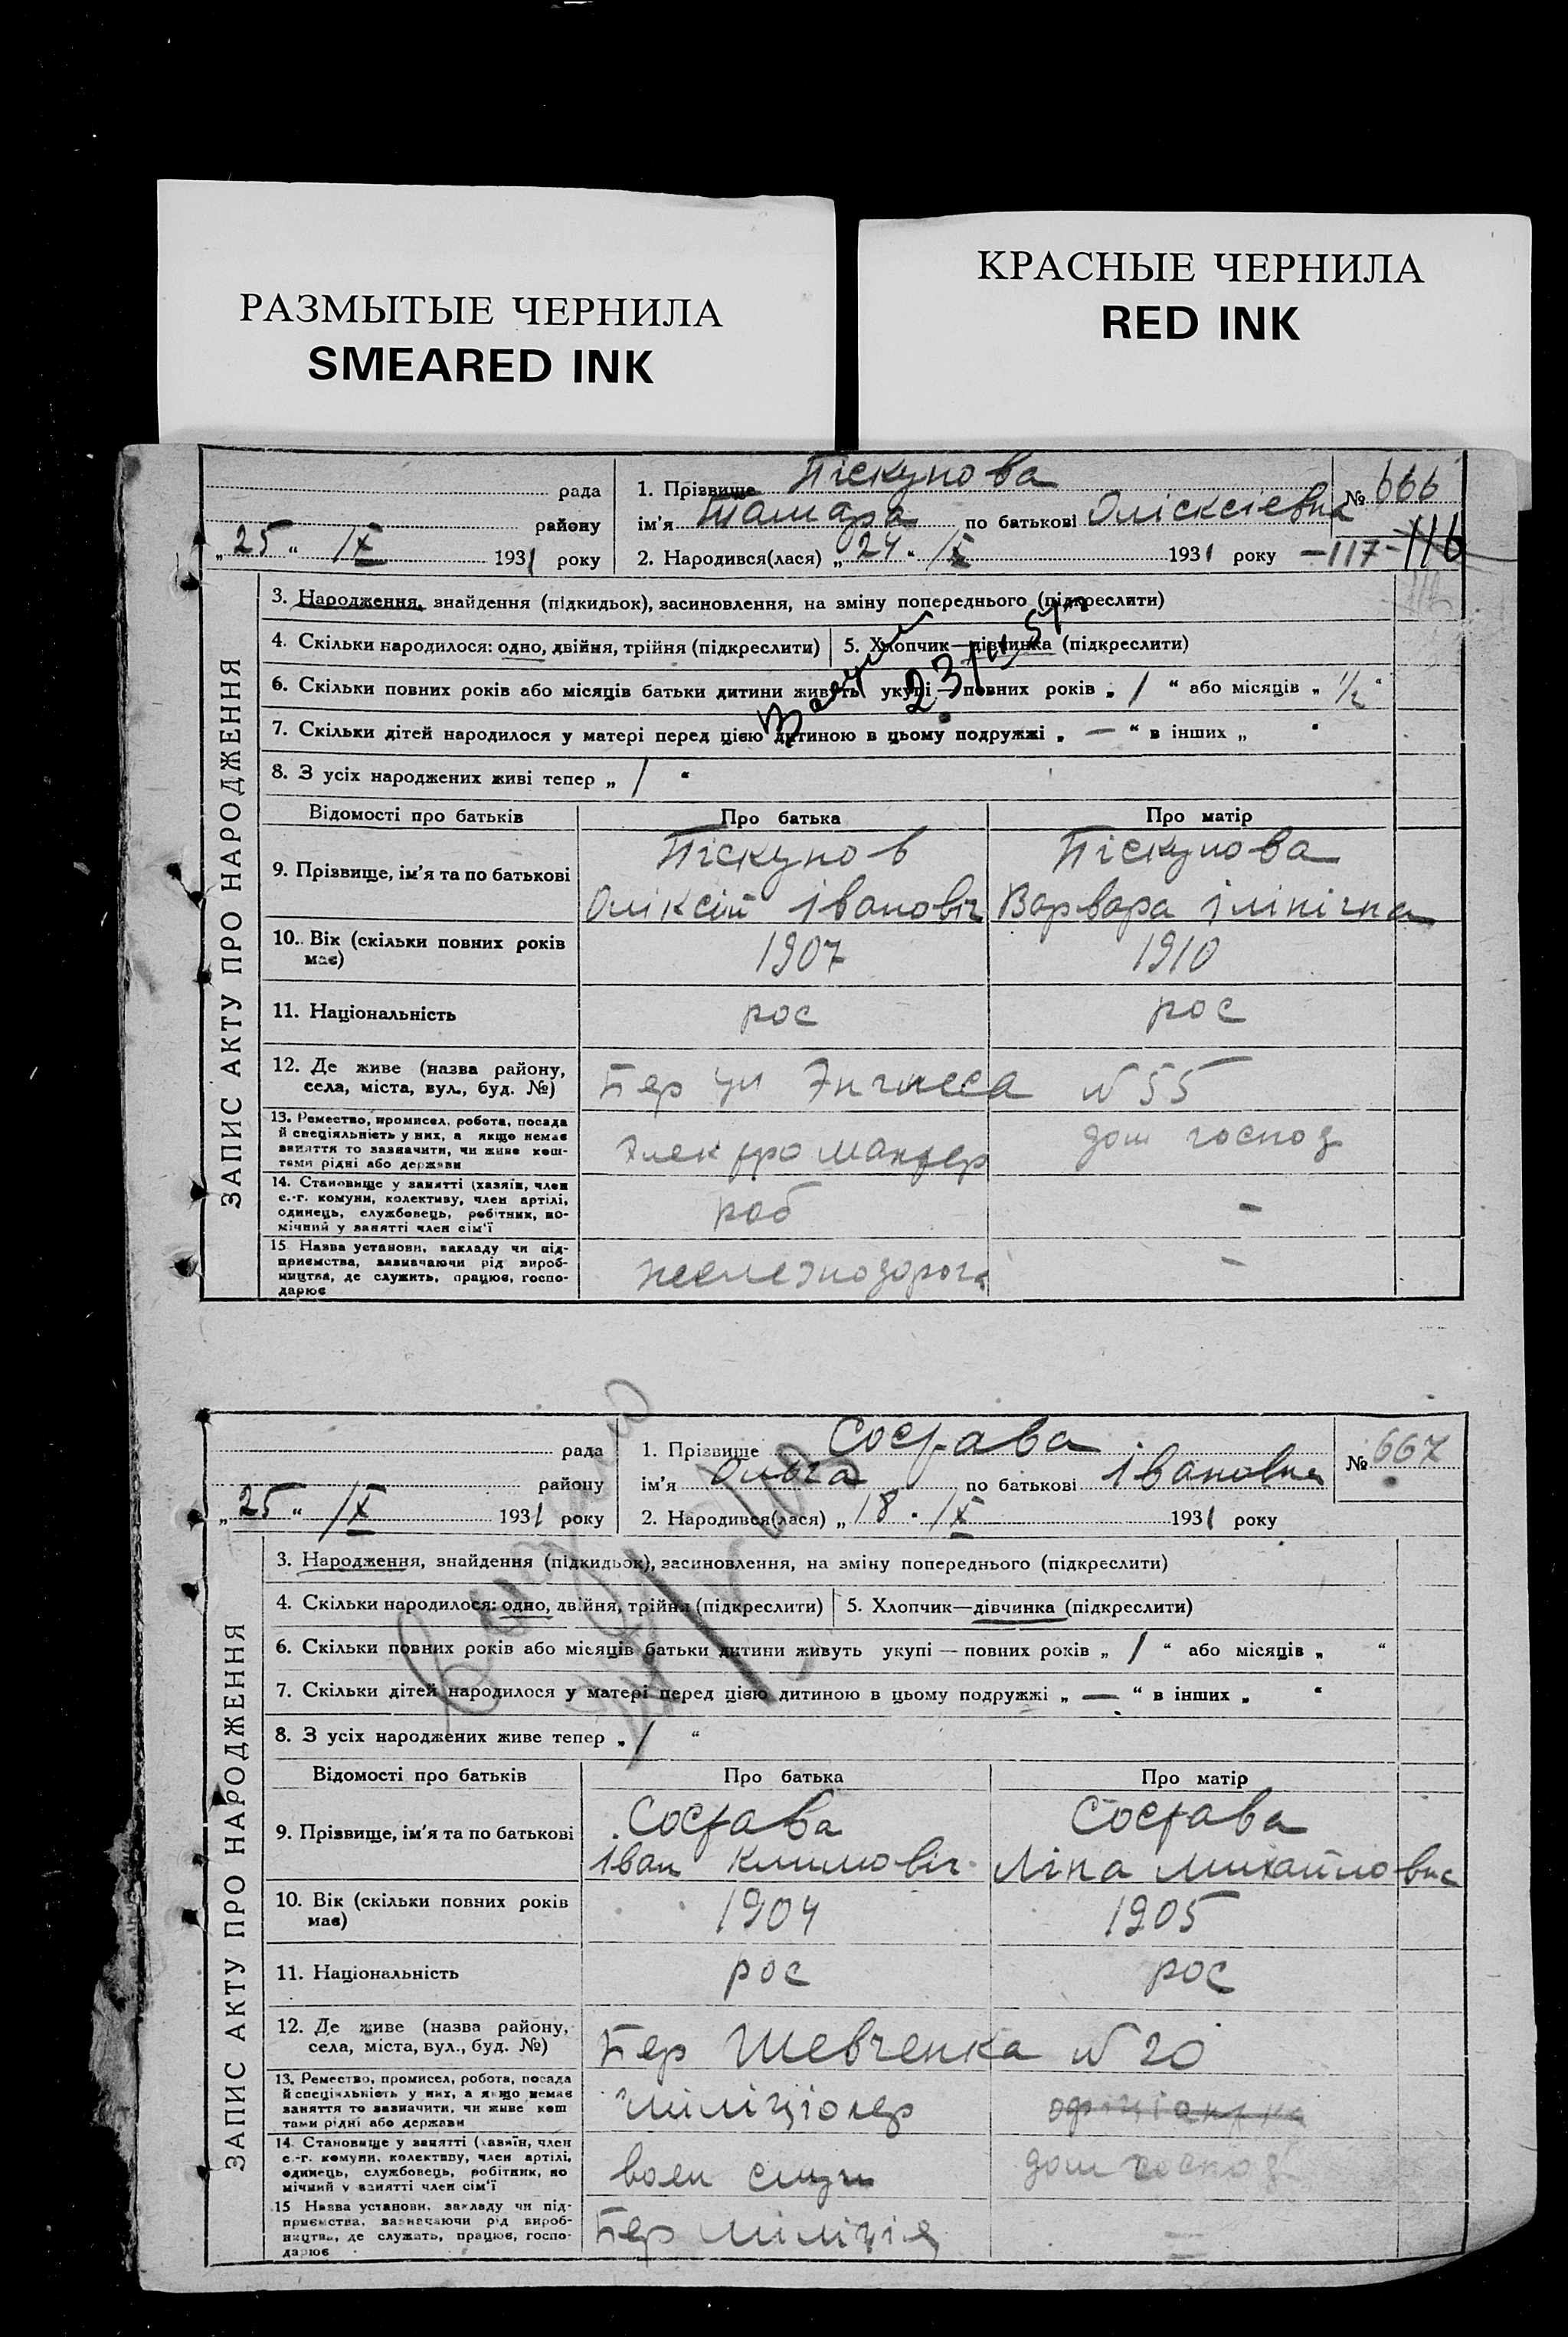 РАЗМЫТЫЕ ЧЕРНИЛА
SMEARED INK
КРАСНЫЕ ЧЕРНИЛА
RED INK
рада
району
„25“ IX 1931 року
1. Прізвище Піскунова
ім'я Тамара по батькові Оліксієвна
2. Народився(лася) „24“ IX 1931 року
№ 666
–117– 116
ЗАПИС АКТУ ПРО НАРОДЖЕННЯ
3. Народження, знайдення (підкидьок), засиновлення, на зміну попереднього (підкреслити)
4. Скільки народилося: одно, двійня, трійня (підкреслити)
5. Хлопчик—дівчинка (підкреслити)
6. Скільки повних років або місяців батьки дитини живуть укупі — повних років „ 1 “ або місяців „ 1/2 “
7. Скільки дітей народилося у матері перед цією дитиною в цьому подружжі „ — “ в інших „ “
8. З усіх народжених живі тепер „ 1 “
Відомості про батьків
Про батька
Про матір
9. Прізвище, ім'я та по батькові
Піскунов
Оліксій Івановіч
Піскунова
Варвара Ілінічна
10. Вік (скільки повних років має)
1907
1910
11. Національність
рос
рос
12. Де живе (назва району, села, міста, вул., буд. №)
Бер ул Энгилса N 55
13. Ремество, промисел, робота, посада й спеціяльність у них, а якщо немає заняття то зазначити, чи живе коштами рідні або держави
Электромантер
дом господ
14. Становище у занятті (хазяїн, член с.-г. комуни, колективу, член артілі, одинець, службовець, робітник, помічний у занятті член сім'ї
роб
–
15 Назва установи, закладу чи підприємства, зазначаючи рід виробництва, де служить, працює, господарює
железнодорога
–
рада
району
„25“ IX 1931 року
1. Прізвище Состава
ім'я Ольга по батькові Івановна
2. Народився(лася) „18“ IX 1931 року
№ 667
ЗАПИС АКТУ ПРО НАРОДЖЕННЯ
3. Народження, знайдення (підкидьок), засиновлення, на зміну попереднього (підкреслити)
4. Скільки народилося: одно, двійня, трійня (підкреслити)
5. Хлопчик—дівчинка (підкреслити)
6. Скільки повних років або місяців батьки дитини живуть укупі — повних років „ 1 “ або місяців „ “
7. Скільки дітей народилося у матері перед цією дитиною в цьому подружжі „ — “ в інших „ “
8. З усіх народжених живе тепер „ 1 “
Відомості про батьків
Про батька
Про матір
9. Прізвище, ім'я та по батькові
Состава
Іван Климовіч
Состава
Ліна Михайловна
10. Вік (скільки повних років має)
1904
1905
11. Національність
рос
рос
12. Де живе (назва району, села, міста, вул., буд. №)
Бер Шевченка N 20
13. Ремество, промисел, робота, посада й спеціяльність у них, а якщо немає заняття то зазначити, чи живе коштами рідні або держави
міліціонер
офіціантка
14. Становище у занятті (хазяїн, член с.-г. комуни, колективу, член артілі, одинець, службовець, робітник, помічний у занятті член сім'ї
воен служ
дом господ
15 Назва установи, закладу чи підприємства, зазначаючи рід виробництва, де служать, працює, господарює
Бер міліція
–